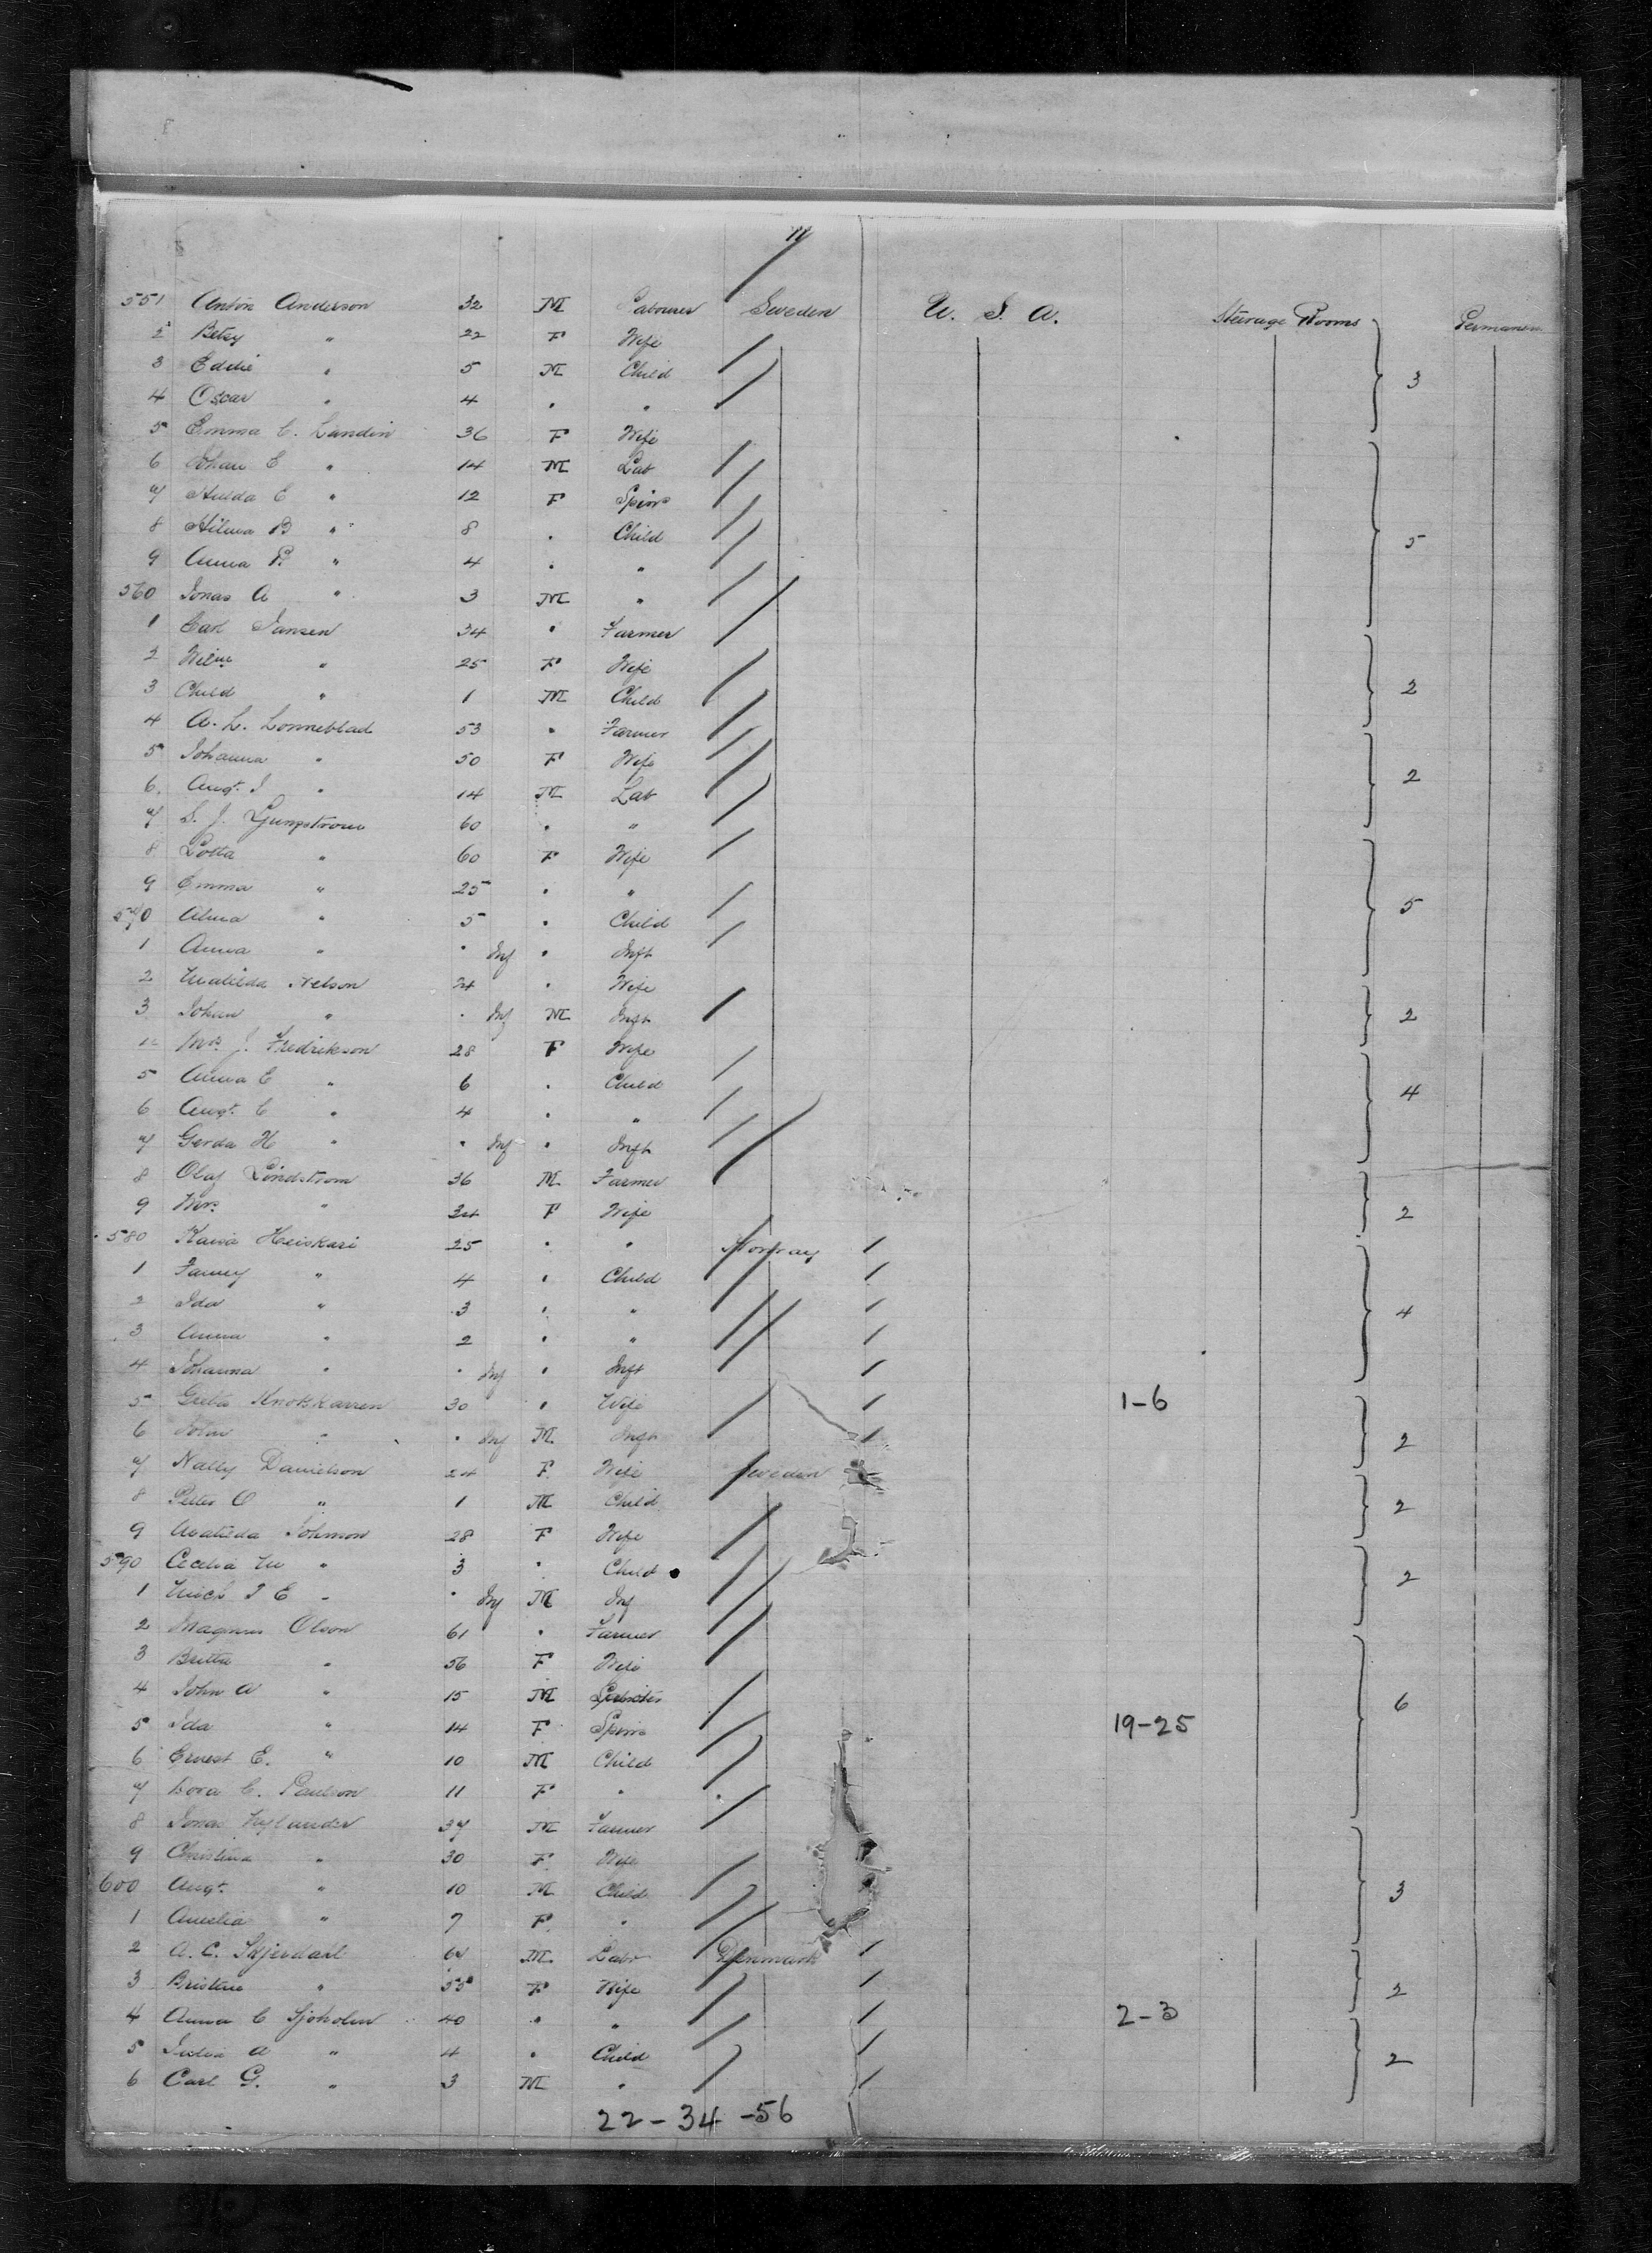 11
551 Anton Anderson 32 M Labourer Sweden U. S. A. Steerage Rooms
2 Betsy " 22 F Wife
3 Eddie " 5 M Child 3
4 Oscar " 4 " "
5 Emma C. Landin 36 F Wife
6 Johan E " 14 M Lab
7 Hulda C " 12 F Spins
8 Hilma B " 8 " Child 5
9 Anna P. " 4 " "
560 Jonas A " 3 M "
1 Carl Jansen 34 " Farmer
2 " 25 F Wife
3 Child " 1 M Child 2
4 A. L. Lonneblad 53 " Farmer
5 Johanna " 50 F Wife 2
6 Augt. J " 14 M Lab
7 S. J. Ljungstrom 60 " "
8 Lotta " 60 F Wife
9 Emma " 25 " "
570 Alma " 5 " Child 5
1 Anna " " Inf " Inft
2 Matilda Nelson 24 " Wife
3 Johan " " Inf M Inft 2
4 Mrs J. Fredrikson 28 F Wife
5 Anna C " 6 " Child 4
6 Augt. C " 4 " "
7 Gerda H " " Inf " Inft
8 Olaf Lindstrom 36 M Farmer
9 Mrs " 34 F Wife 2
580 Kaisa Heiskari 25 " " Norway
1 Fanny " 4 " Child
2 Ida " 3 " " 4
3 Anna " 2 " "
4 Johanna " " Inf " Inft
5 Greta 30 " Wife 1-6
6 John " " Inf M Inft 2
7 Nally Danielson 24 F Wife Sweden
8 Peter O " 1 M Child 2
9 Matilda Johnson 28 F Wife
590 Cecelia M " 3 " Child 2
1 " " Inf M Inf
2 Magnus Olson 61 " Farmer
3 Britta " 56 F Wife
4 John A " 15 M 6
5 Ida " 14 F Spins 19-25
6 Ernest E. " 10 M Child
7 Dora C. Paulson 11 F "
8 Jonas 37 M Farmer
9 Christina " 30 F Wife
600 Augt. " 10 M Child 3
1 Amelia " 7 F "
2 A. C. 64 M Labr Denmark
3 " 55 F Wife 2
4 Anna C Sjoholm 40 " " 2-3
5 A " 4 " Child 2
6 Carl G. " 3 M "
22-34-56